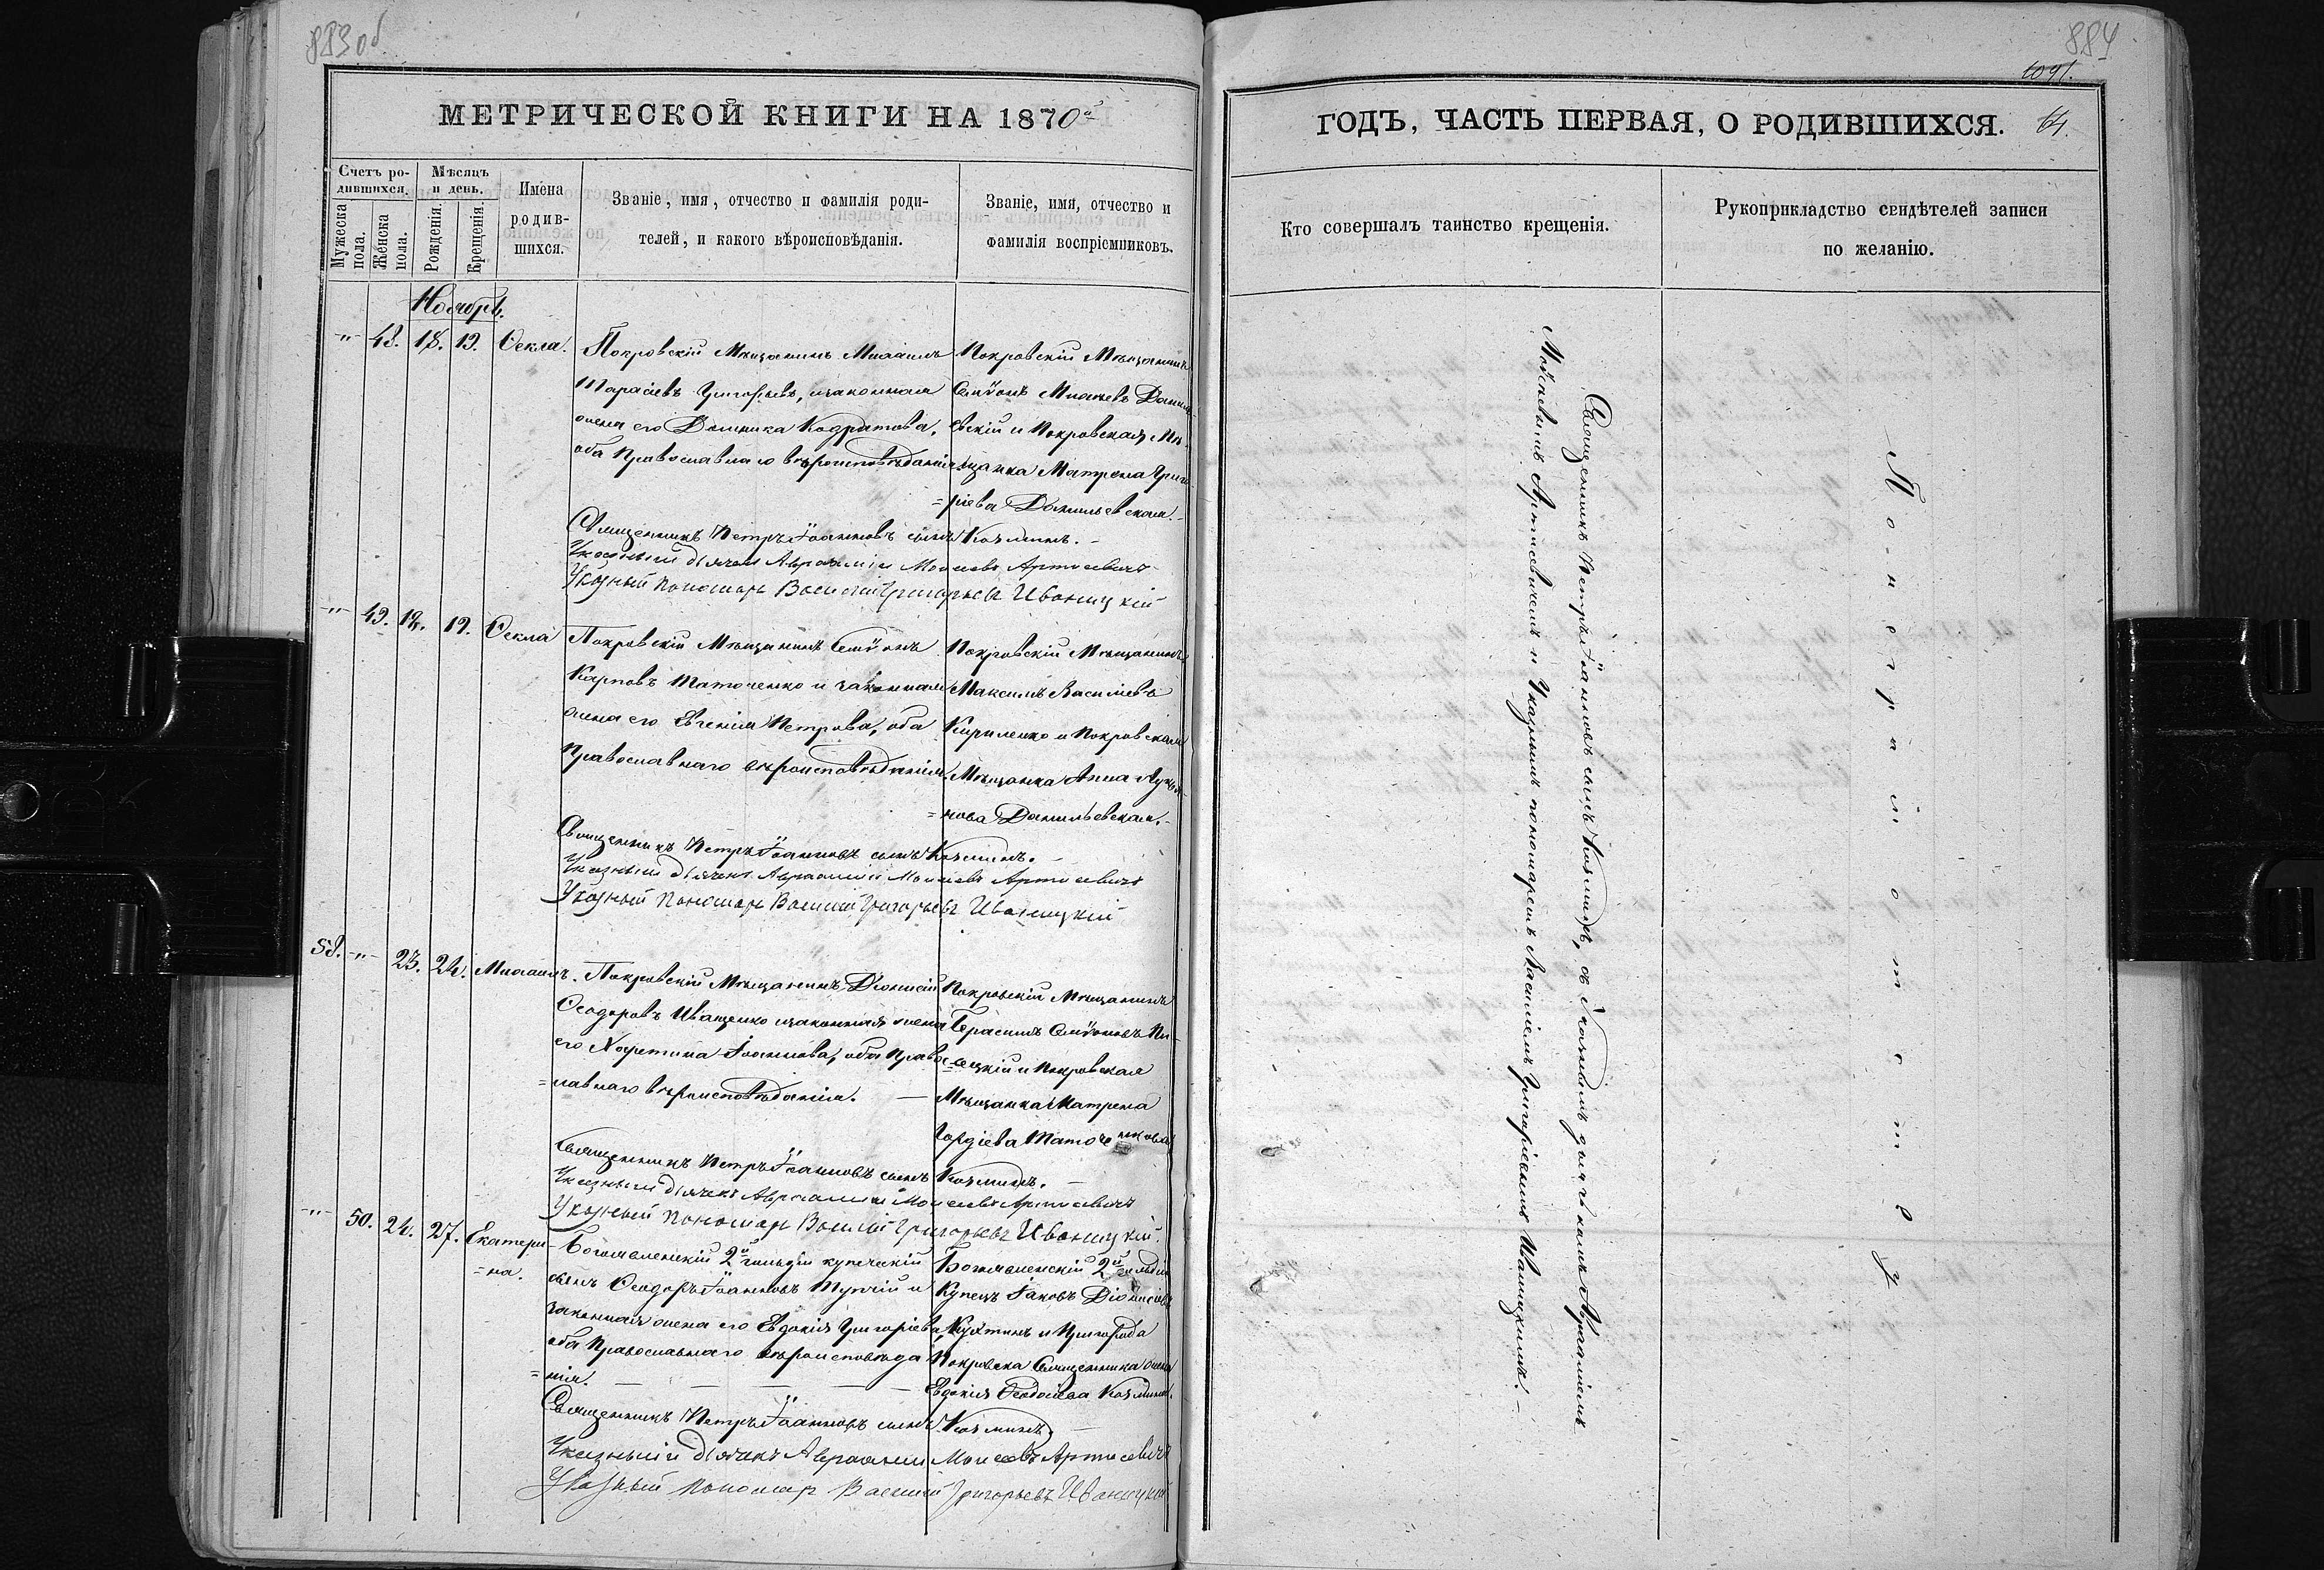 883 об
884
1091.
МЕТРИЧЕСКОЙ КНИГИ НА 1870й
ГОДЪ, ЧАСТЬ ПЕРВАЯ, О РОДИВШИХСЯ. 64.
Счетъ ро-
дившихся.
Мужеска пола.
Женска пола.
Мѣсяцъ
и день.
Рожденія.
Крещенія.
Имена
родив-
шихся.
Званіе, имя, отчество и фамилія роди-
телей, и какого вѣроисповѣданія.
Званіе, имя, отчество и
фамилія воспріемниковъ.
Кто совершалъ таинство крещенія.
Рукоприкладство свидѣтелей записи
по желанію.
Ноябрь.
-"- 48. 18. 19. Ѳекла.
Покровскій Мѣщанинъ Михаилъ
Тарасіевъ Григорьевъ, изаконная
жена его Домника Кодратова,
оба Православнаго вѣроисповѣданія.
Покровскій Мѣщанинъ
Семѵонъ Михаиевъ Даниль-
евскій и Покровская Мѣ-
щанка Матрена Григо-
=ріева Данильевская.-
Священникъ Петръ Іоанновъ сынъ Козминъ.-
Указный дьячекъ Авраамій Моисеевъ Артисевичъ
Указный пономарь Василій Григорьевъ Иваницкій
-"- 49. 18. 19. Ѳекла
Покровскій Мѣщанинъ Семѵонъ
Карповъ Таточенко и законная
жена его Евгенія Петрова, оба
Православнаго вѣроисповѣданія.
Покровскій Мѣщанинъ
Максимъ Василіевъ
Кириленко и Покровская
Мѣщанка Анна Лукья-
=нова Данильевская.-
Священникъ Петръ Іоанновъ сынъ Козминъ.
Указный дьячекъ Авраамій Моисеевъ Артисевичъ
Указный Пономарь Василій Григорьевъ Иваницкій
58. -"- 23. 24. Михаилъ.
Покровскій Мѣщанинъ Діонисій
Ѳеодоровъ Иващенко изаконная жена
его Харитина Іоаннова, оба Право-
=славнаго вѣроисповѣданія. —
Покровскій Мѣщанинъ
Герасимъ Семѵоновъ
и Покровская
Мѣщанка Матрена
Гордіева
Священникъ Петръ Іоанновъ сынъ Козминъ.-
Указный дьячекъ Авраамій Моисеевъ Артисевичъ
Указный Пономарь Василій Григорьевъ Иваницкій.
-"- 50. 24. 27. Екатери-
=на.
Богоявленскій 2й гильдіи купеческій
сынъ Ѳеодоръ Іоанновъ и
законная жена его Евдокія Григоріева,
оба Православнаго вѣроисповѣда
=нія. — — — —
Богоявленскій 2й гильдіи
Купецъ Іаковъ Діонисіевъ
и Пригорода
Покровска Священника жена
Евдокія Ѳеодосіева Козмина.
Священникъ Петръ Іоанновъ сынъ Козминъ.
Указный дьячекъ Авраамій Моисеевъ Артисевичъ
Указный пономарь Василій Григорьевъ Иваницкій
Священникъ Петръ Іоанновъ сынъ Козминъ, съ Указнымъ дьячькомъ Авраамiемъ
Моисеевымъ Артисевичемъ и Указнымъ пономаремъ Василіемъ Григоріевымъ Иваницкимъ.-
По неграмотству